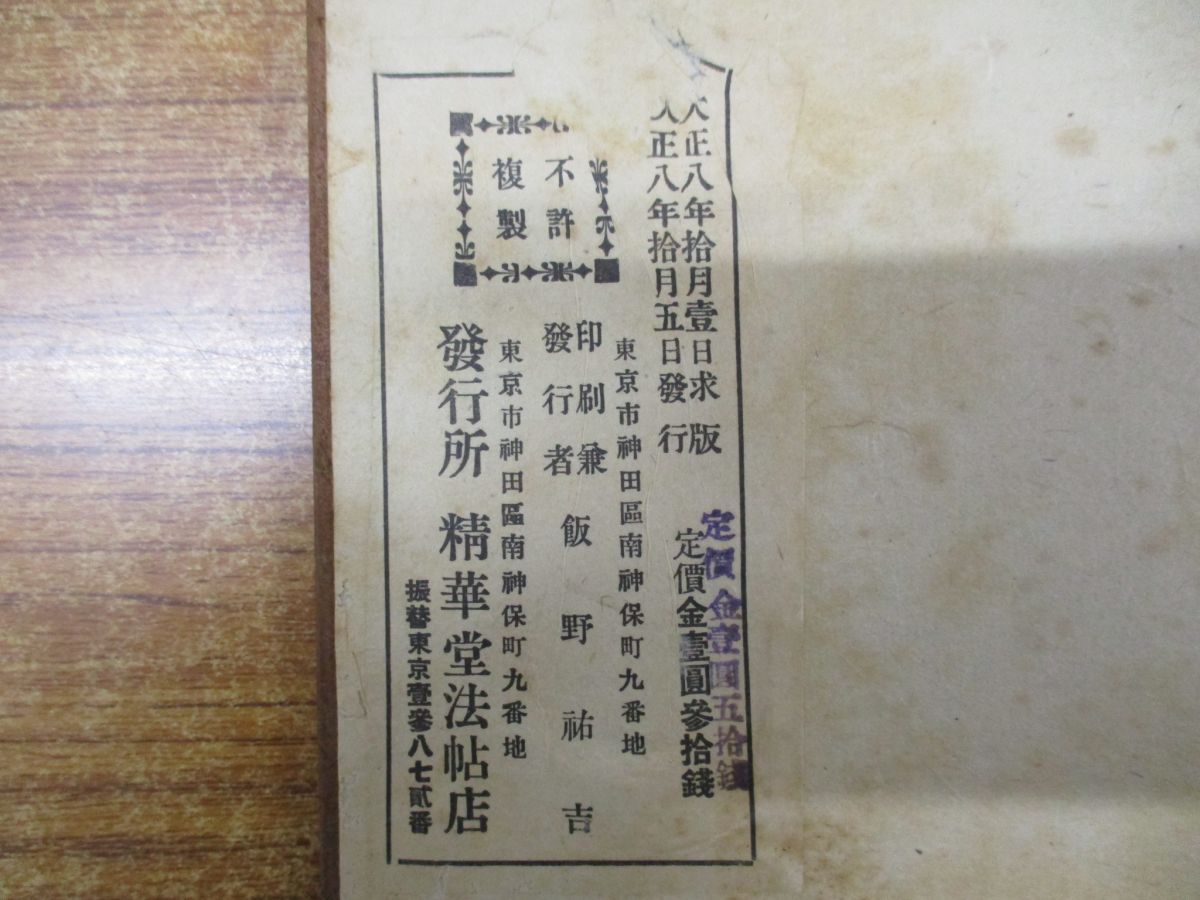 大正八年拾月壹日求版
大正八年拾月五日發行
定價金壹圓五拾錢
定價金壹圓參拾錢
不許
複製
東京市神田區南神保町九番地
印刷兼
發行者
飯野祐吉
東京市神田區南神保町九番地
發行所 精華堂法帖店
振替東京壹參八七貳番